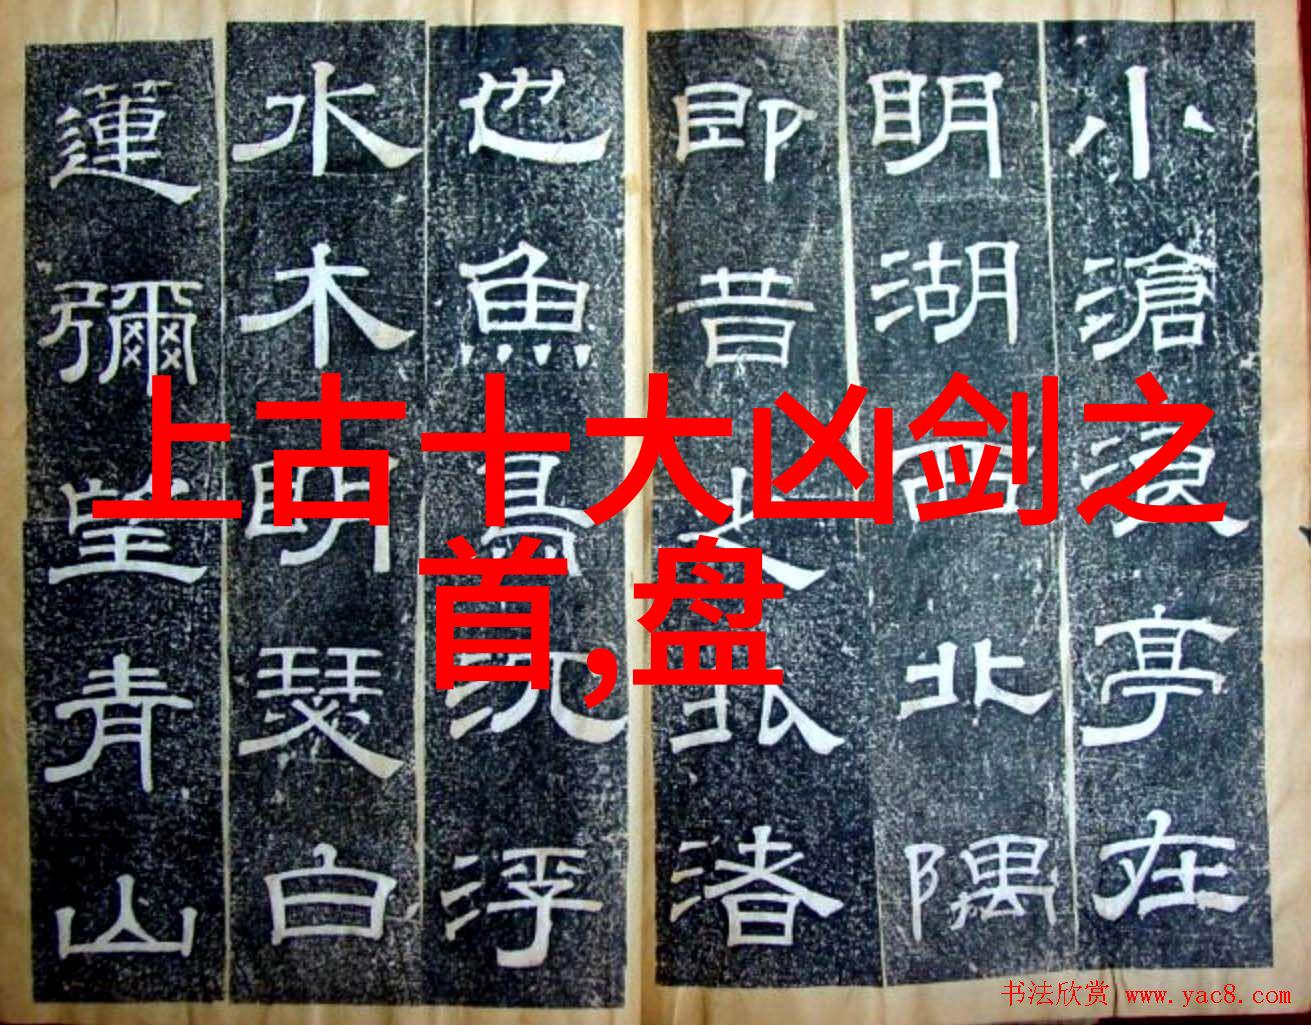 小滄浪亭在
明湖西北隅
即昔之渚
也魚鳥沉浮
水木明瑟白
蓮彌望青山
上古十大凶剑之
首,盘
书法欣赏 www.yac8.com